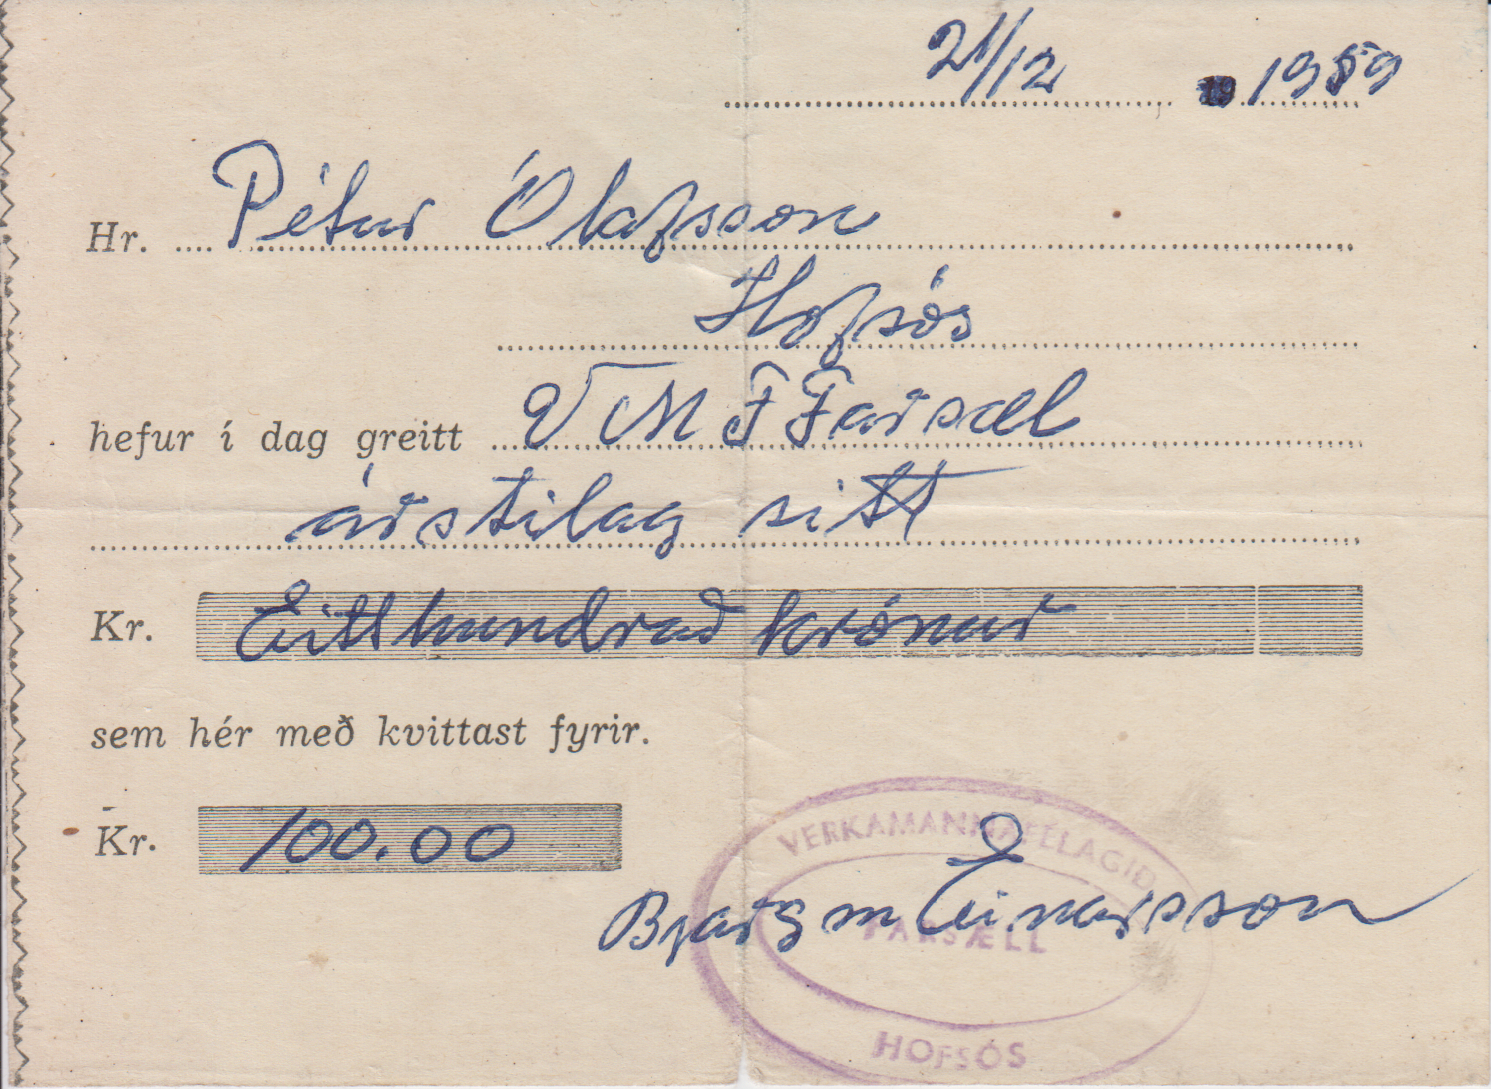 21/12 19 1959
Hr. Pétur Ólafsson
Hofsós
hefur í dag greitt V M F Farsæl
árstilag sitt
Kr. Eitt hundrað krónur
sem hér með kvittast fyrir.
Kr. 100.00
VERKAMANNAFÉLAGIÐ
Einarsson
FARSÆLL
HOFSÓS